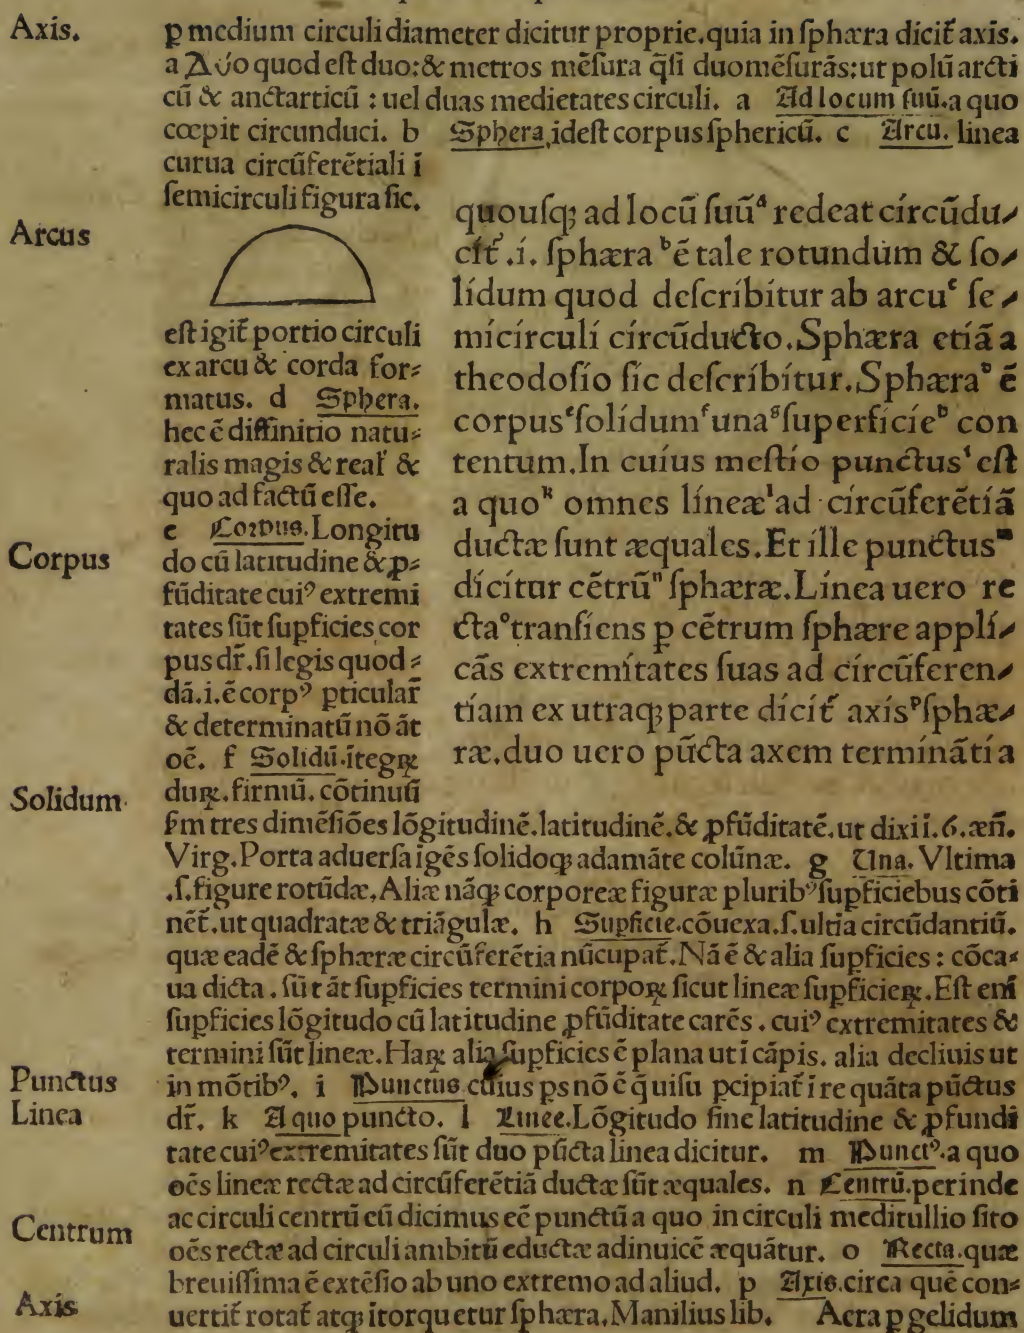 Axis.
p medium circuli diameter dicitur proprie.quia in sphæra dicit̃ axis.
a Δυο quod est duo:& metros mẽsura q̃si duomẽsurãs:ut polũ arcti
cũ & anctarticũ : uel duas medietates circuli. a Ad locum suũ.a quo
cœpit circunduci. b Sphera,idest corpus sphericũ. c Arcu. linea
curua circũferẽtiali ĩ
semicirculi figura sic.
Arcus
est igit̃ portio circuli
ex arcu & corda for⸗
matus. d Sphera.
hec ẽ diffinitio natu⸗
ralis magis & real̃ &
quo ad factũ esse.
e Corpus.Longitu
Corpus
do cũ latitudine & ꝓ⸗
fũditate cuiꝰ extremi
tates sũt supficies cor
pus dr̃.si legis quod⸗
dã.i.ẽ corpꝰ pticular̃
& determinatũ nõ ãt
oẽ. f Solidũ.ĩtegꝝ
Solidum
duꝝ.firmũ.cõtinuũ
quousqꝫ ad locũ suũᵃ redeat circũdu⸗
cit̃ .i. sphæra ᵇ ẽ tale rotundum & so⸗
lidum quod describitur ab arcuᶜ se⸗
micirculi circũducto.Sphæra etiã a
theodosio sic describitur.Sphæraᵈ ẽ
corpusᵉ solidumᶠ unaᵍ superficieʰ con
tentum.In cuius mestio punctusⁱ est
a quoᵏ omnes lineæˡ ad circũferẽtiã
ductæ sunt æquales.Et ille punctusᵐ
dicitur cẽtrũⁿ sphæræ.Linea uero re
ctaᵒ transiens p cẽtrum sphære appli⸗
cãs extremitates suas ad circũferen⸗
tiam ex utraqꝫ parte dicit̃ axisᵖ sphæ⸗
ræ.duo uero pũcta axem terminãtia
s̃m tres dimẽsiões lõgitudinẽ.latitudinẽ.& ꝓfũditatẽ.ut dixi ĩ.6.æñ.
Virg.Porta aduersa igẽs solidoqꝫ adamãte colũnæ. g Una.Vltima
.s.figure rotũdæ.Aliæ nãqꝫ corporeæ figuræ pluribꝰ supficiebus cõti
nẽt̃.ut quadratæ & triãgulæ. h Supficie.cõuexa.s.ultia circũdantiũ.
quæ eadẽ & sphæræ circũferẽtia nũcupat̃.Nã ẽ & alia supficies : cõca⸗
ua dicta . sũt ãt supficies termini corpoꝝ sicut lineæ supficieꝝ.Est enĩ
supficies lõgitudo cũ latitudine ꝓfũditate carẽs . cuiꝰ extremitates &
termini sũt lineæ.Haꝝ alia supficies ẽ plana ut ĩ cãpis. alia decliuis ut
Punctus
in mõtibꝰ. i Punctus.cuius ps nõ ẽ q̃ uisu pcipiat̃ i re quãta pũctus
Linea
dr̃. k A quo puncto. l Linee.Lõgitudo sine latitudine & ꝓfundi
tate cuiꝰ extremitates sũt duo pũcta linea dicitur. m Punctꝰ.a quo
oẽs lineæ rectæ ad circũferẽtiã ductæ sũt æquales. n Centrũ.perinde
Centrum
ac circuli centrũ eũ dicimus eẽ punctũ a quo in circuli meditullio sito
oẽs rectæ ad circuli ambitũ eductæ adinuicẽ æquãtur. o Recta.quæ
breuissima ẽ extẽsio ab uno extremo ad aliud. p Axis.circa quẽ con⸗
Axis
uertit̃ rotat̃ atqꝫ ĩtorquetur sphæra.Manilius lib. Aera p gelidum